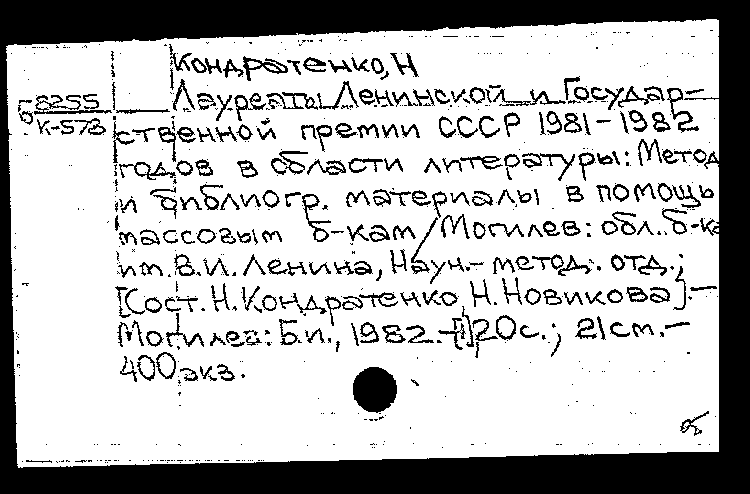 Кондратенко, Н
Б 8255
К-573
Лауреаты Ленинской и Государ-
ственной премии СССР 1981-1982
годов в области литературы: Метод
и библиогр. материалы в помощь
массовым б-кам / Могилев: обл. б-ка
им. В.И. Ленина, Науч.-метод. отд.;
[Сост. Н. Кондратенко, Н. Новикова].—
Могилев: Б.и., 1982.- 20с.; 21см.—
400 экз.